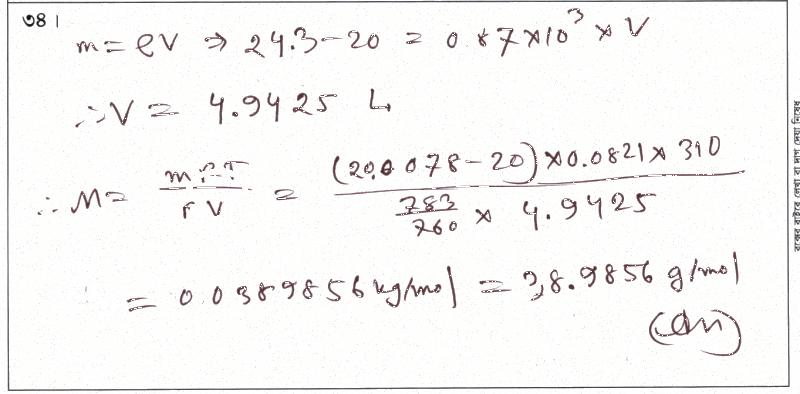 ৩৪।
m = ρV ⇒ 24.3-20 = 0.87×10³ × V
∴V = 4.9425 L
∴ M = mRT/PV = (20.0078-20)×0.0821×310 / (783/760 × 4.9425)
= 0.0389856 kg/mol = 38.9856 g/mol
(Ans)